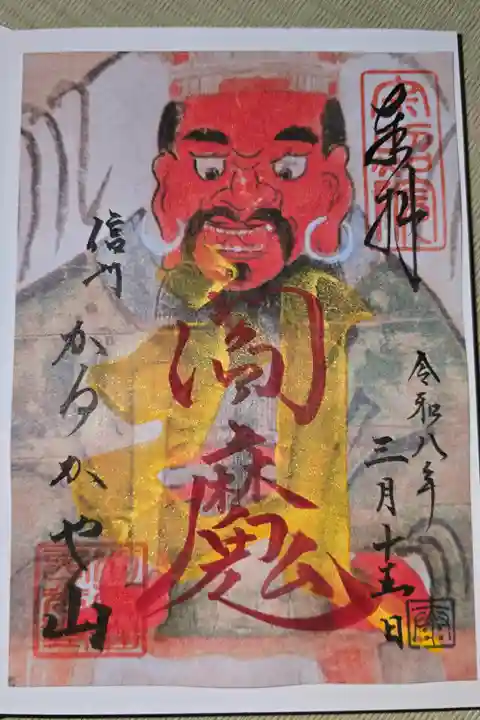 奉拝
令和八年
三月十五日
閻魔
信州
かるかや山